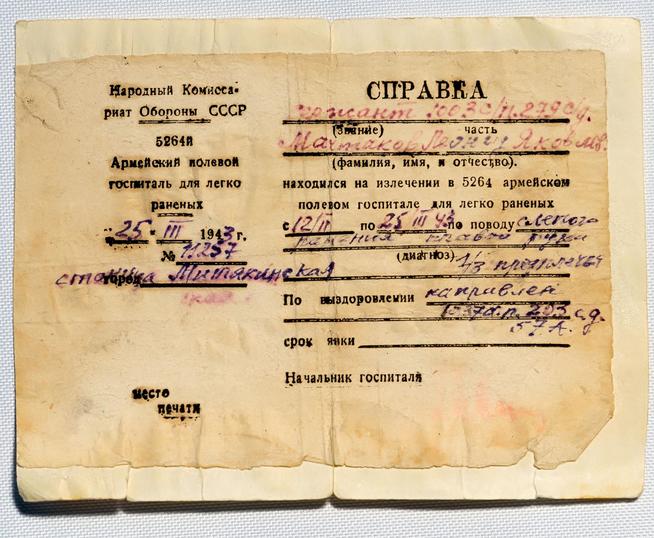 Народный Комисса-
риат Обороны СССР
5264й
Армейский полевой
госпиталь для легко
раненых
25 III 1943 г.
№ 11257
город станица Митякинская
место
печати
СПРАВКА
сержант 1003 с/п. 279 с/д.
(звание) часть
Мачтаков Леонид Яковлев.
(фамилия, имя, и отчество).
находился на излечении в 5264 армейском
полевом госпитале для легко раненых
с 12/II по 25 III 43 по поводу слепого
ранения правой руки
(диагноз) 1/3 предплечья
По выздоровлении направлен
203 с.д.
57 А.
срок явки
Начальник госпиталя